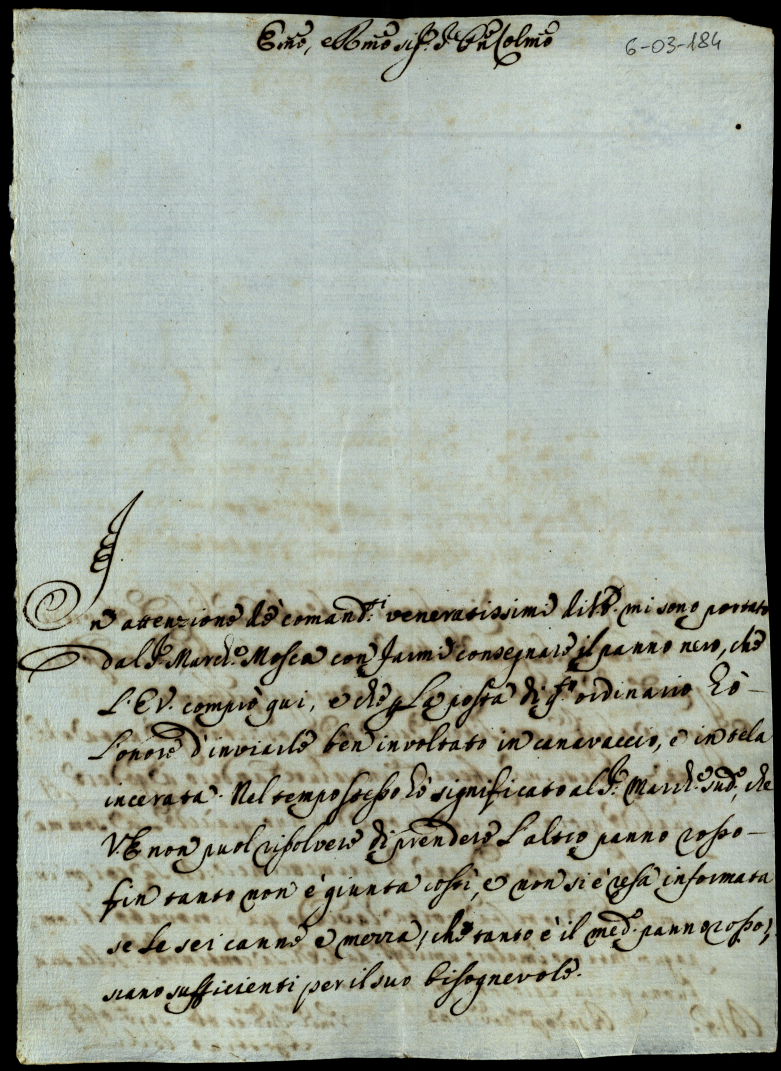 Emõ, e Rmõ Sig.r P.rõn Colmõ
6-03-184
In attenzione de' comand.ti veneratissimi di V.E. mi sono portato
dal S.r March.e Mosca con farmi consegnare il panno nero, che
L'E.V. comprò qui, e che p la posta di q.sto ordinario hò
l'onore d'inviarle ben involtato in canavaccio, e in tela
incerata. Nel tempo stesso hò significato al S.r March.e sud.o, che
V.E. non puol risolvere di prendere l'altro panno rosso
fin tanto non è giunta costì, e non si è resa informata
se le sei canne e mezza, che tanto è il med.o panno rosso,
siano sufficienti per il suo bisognevole.